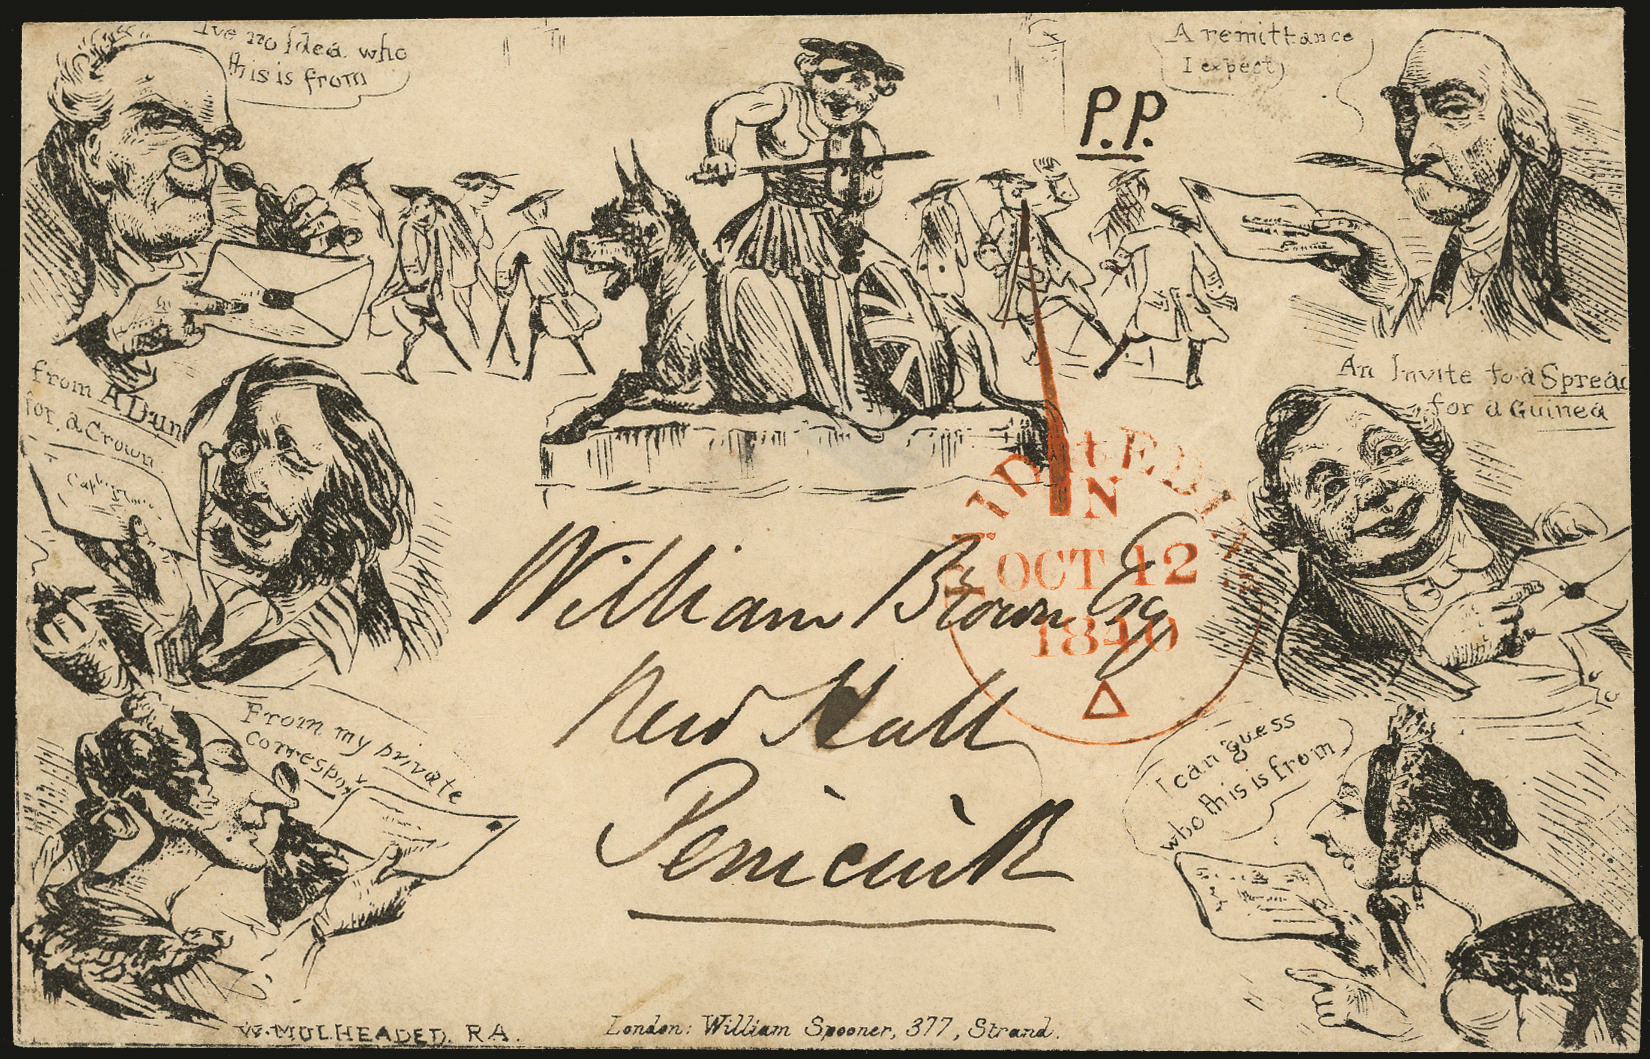 I've no Idea who
this is from
A remittance
I expect
P.P.
from A Dun
for a Crown
An Invite to a Spread
for a Guinea
PAID at EDIN
N
OCT 12
1840
William Brown Esq
New Hall
Penicuik
From my private
correspon
I can guess
who this is from
W. MULHEADED. R.A.
London: William Spooner, 377, Strand.